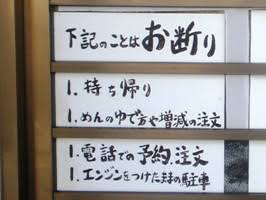 下記のことはお断り
1.持ち帰り
1.めんのゆで方や増減の注文
1.電話での予約.注文
1.エンジンをつけたままの駐車